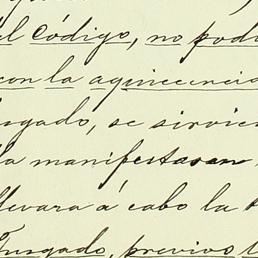 el Código, no pod
con la aquiescencia
usgado, se sirvie
la manifestasen
llevara á cabo la
Jusgado, previos